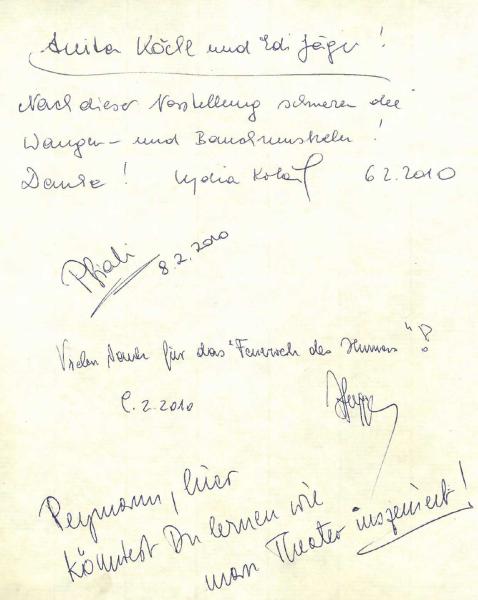 Anita Köchl und Edi Jäger!
Nach dieser Vorstellung schmerzen die
Wangen- und Bauchmuskeln!
Danke! Lydia 6 2. 2010
8. 2. 2010
Vielen Dank für das "Feuerwerk des Humors"!
2. 2010
Peymann, hier
könntest Du lernen wie
man Theater inszeniert!